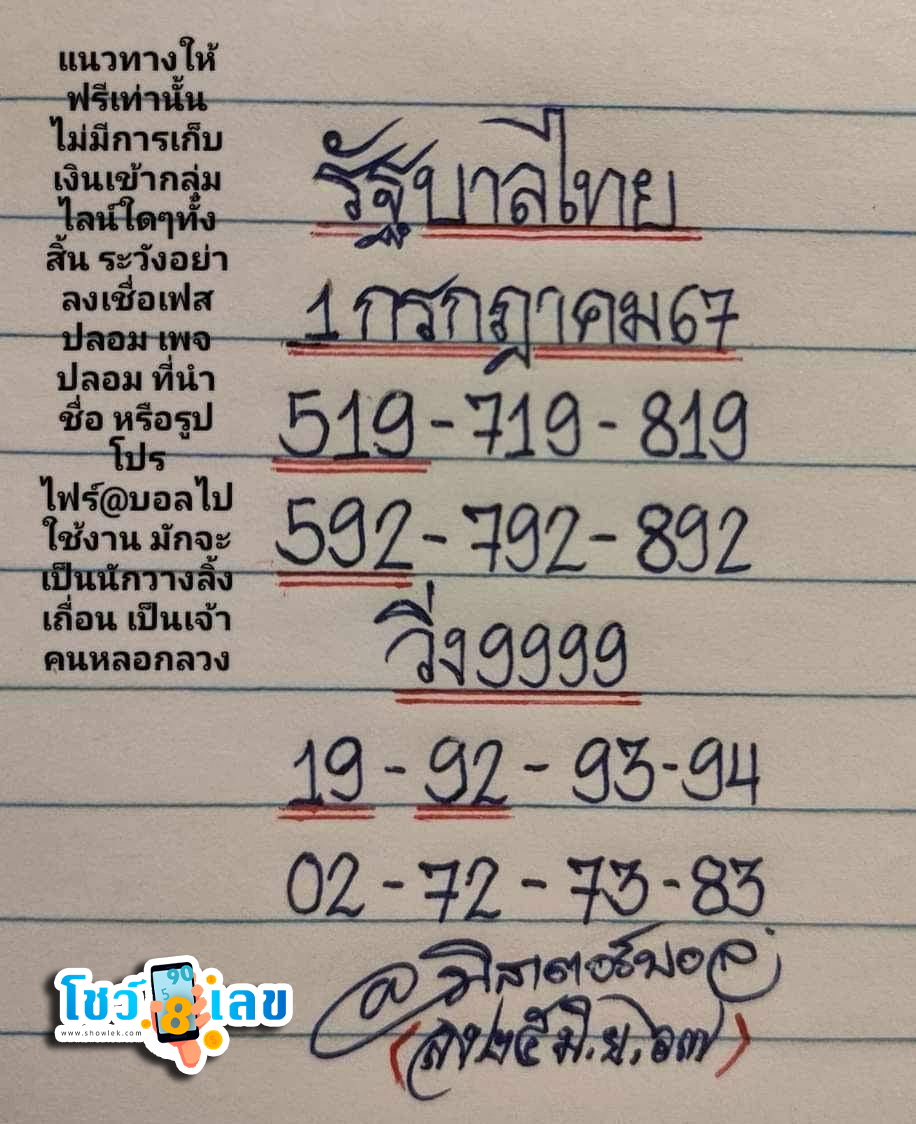 แนวทางให้
ฟรีเท่านั้น
ไม่มีการเก็บ
เงินเข้ากลุ่ม
ไลน์ใดๆทั้ง
สิ้น ระวังอย่า
ลงเชื่อเฟส
ปลอม เพจ
ปลอม ที่นำ
ชื่อ หรือรูป
โปร
ไฟร์@บอลไป
ใช้งาน มักจะ
เป็นนักวางลิ้ง
เถื่อน เป็นเจ้า
คนหลอกลวง
รัฐบาลไทย
1 กรกฎาคม 67
519-719-819
592-792-892
วิ่ง9999
19-92-93-94
02-72-73-83
@มิสเตอร์บอล
(ลง ๒๕ มิ.ย. ๖๗)
โชว์ 8 เลข
90
5
www.showlek.com